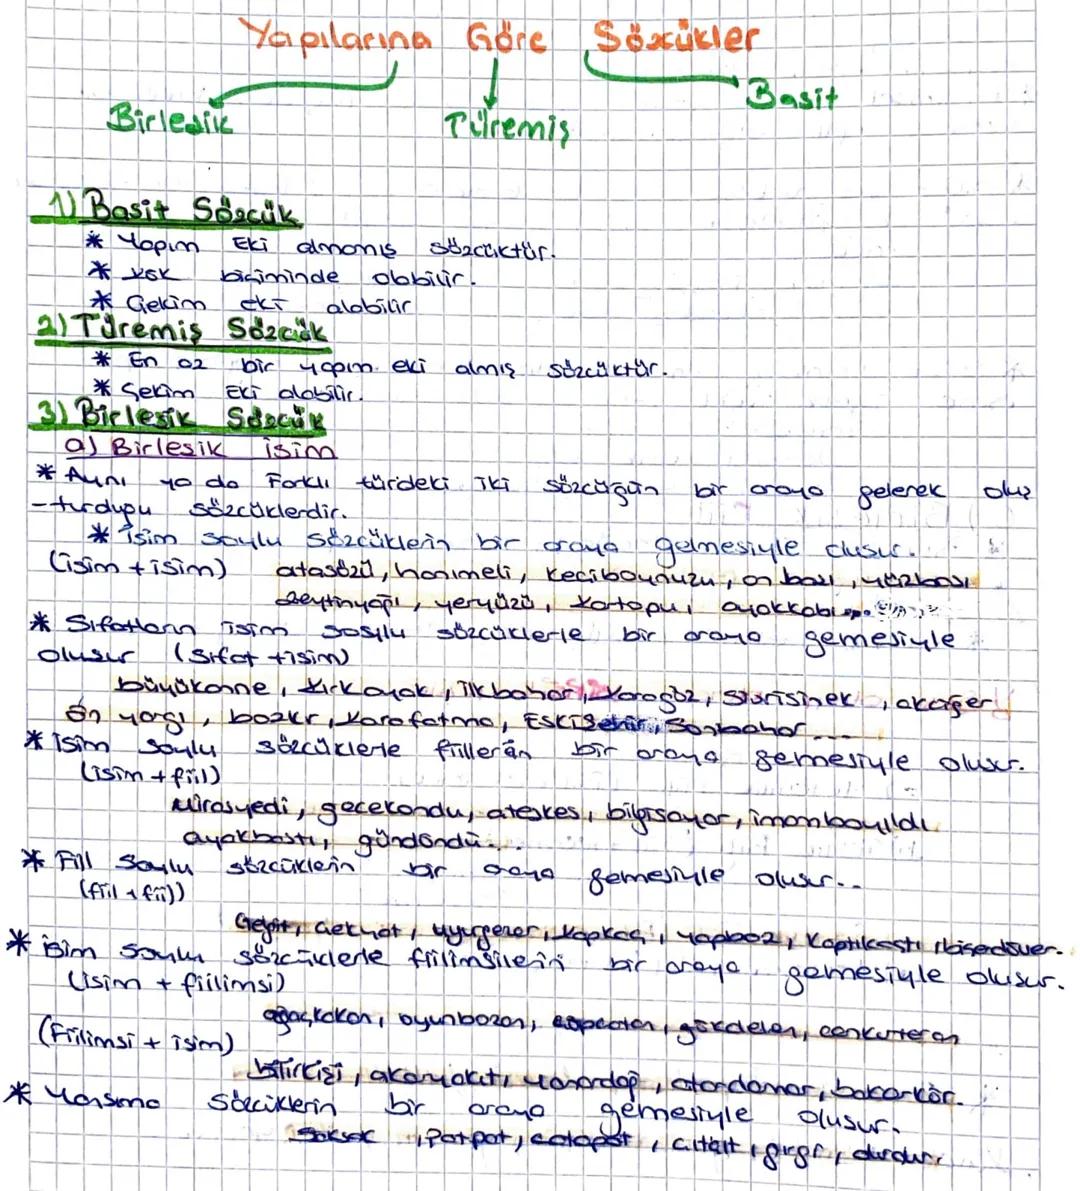 Yapılarına Göre Sözcükler
Birleşik Türemiş Basit
1) Basit Sözcük
* Yapım Eki almamış sözcüktür.
* kök biçiminde olabilir.
* Çekim eki alabilir
2) Türemiş Sözcük
* En az bir yapım eki almış sözcüktür.
* Çekim Eki alabilir.
3) Birleşik Sözcük
a) Birleşik isim
* Aynı ya da Farklı türdeki iki sözcüğün bir araya gelerek oluş
-turduğu sözcüklerdir.
* İsim soylu sözcüklerin bir araya gelmesiyle oluşur.
(isim + isim) atasözü, hanımeli, keçiboynuzu, on başı, yüzbaşı
zeytinyağı, yeryüzü, kartopu, ayakkabı...
* Sıfatların isim soylu sözcüklerle bir araya gemesiyle
oluşur (Sıfat + isim)
büyükanne, kırkayak, ilkbahar, Karagöz, Sivrisinek, akciğer
Ön yargı, bozkır, Karafatma, Eskişehir, Sonbahar....
* İsim soylu sözcüklerle fiillerin bir araya gemesiyle oluşur.
(isim + fiil)
Mirasyedi, gecekondu, ateşkes, bilgisayar, imambayıldı
ayakbastı, gündöndü...
* Fiil Soylu sözcüklerin bir araya gemesiyle oluşur..
(fiil + fiil)
Gelgit, Çekyat, uyurgezer, kapkaç, yapboz, Kaptıkaçtı, biçerdöver.
* İsim soylu sözcüklerle fiilimsilerin bir araya gemesiyle oluşur.
(isim + fiilimsi)
ağaçkakan, oyunbozan, gökdelen, cankurtaran
(Fiilimsi + isim)
bilirkişi, akaryakıt, yanardağ, atardamar, bakarkör.
* Yansıma Sözcüklerin bir araya gemesiyle oluşur.
Şakşak, Patpat, çatapat, çıtçıt, gırgır, dırdır.